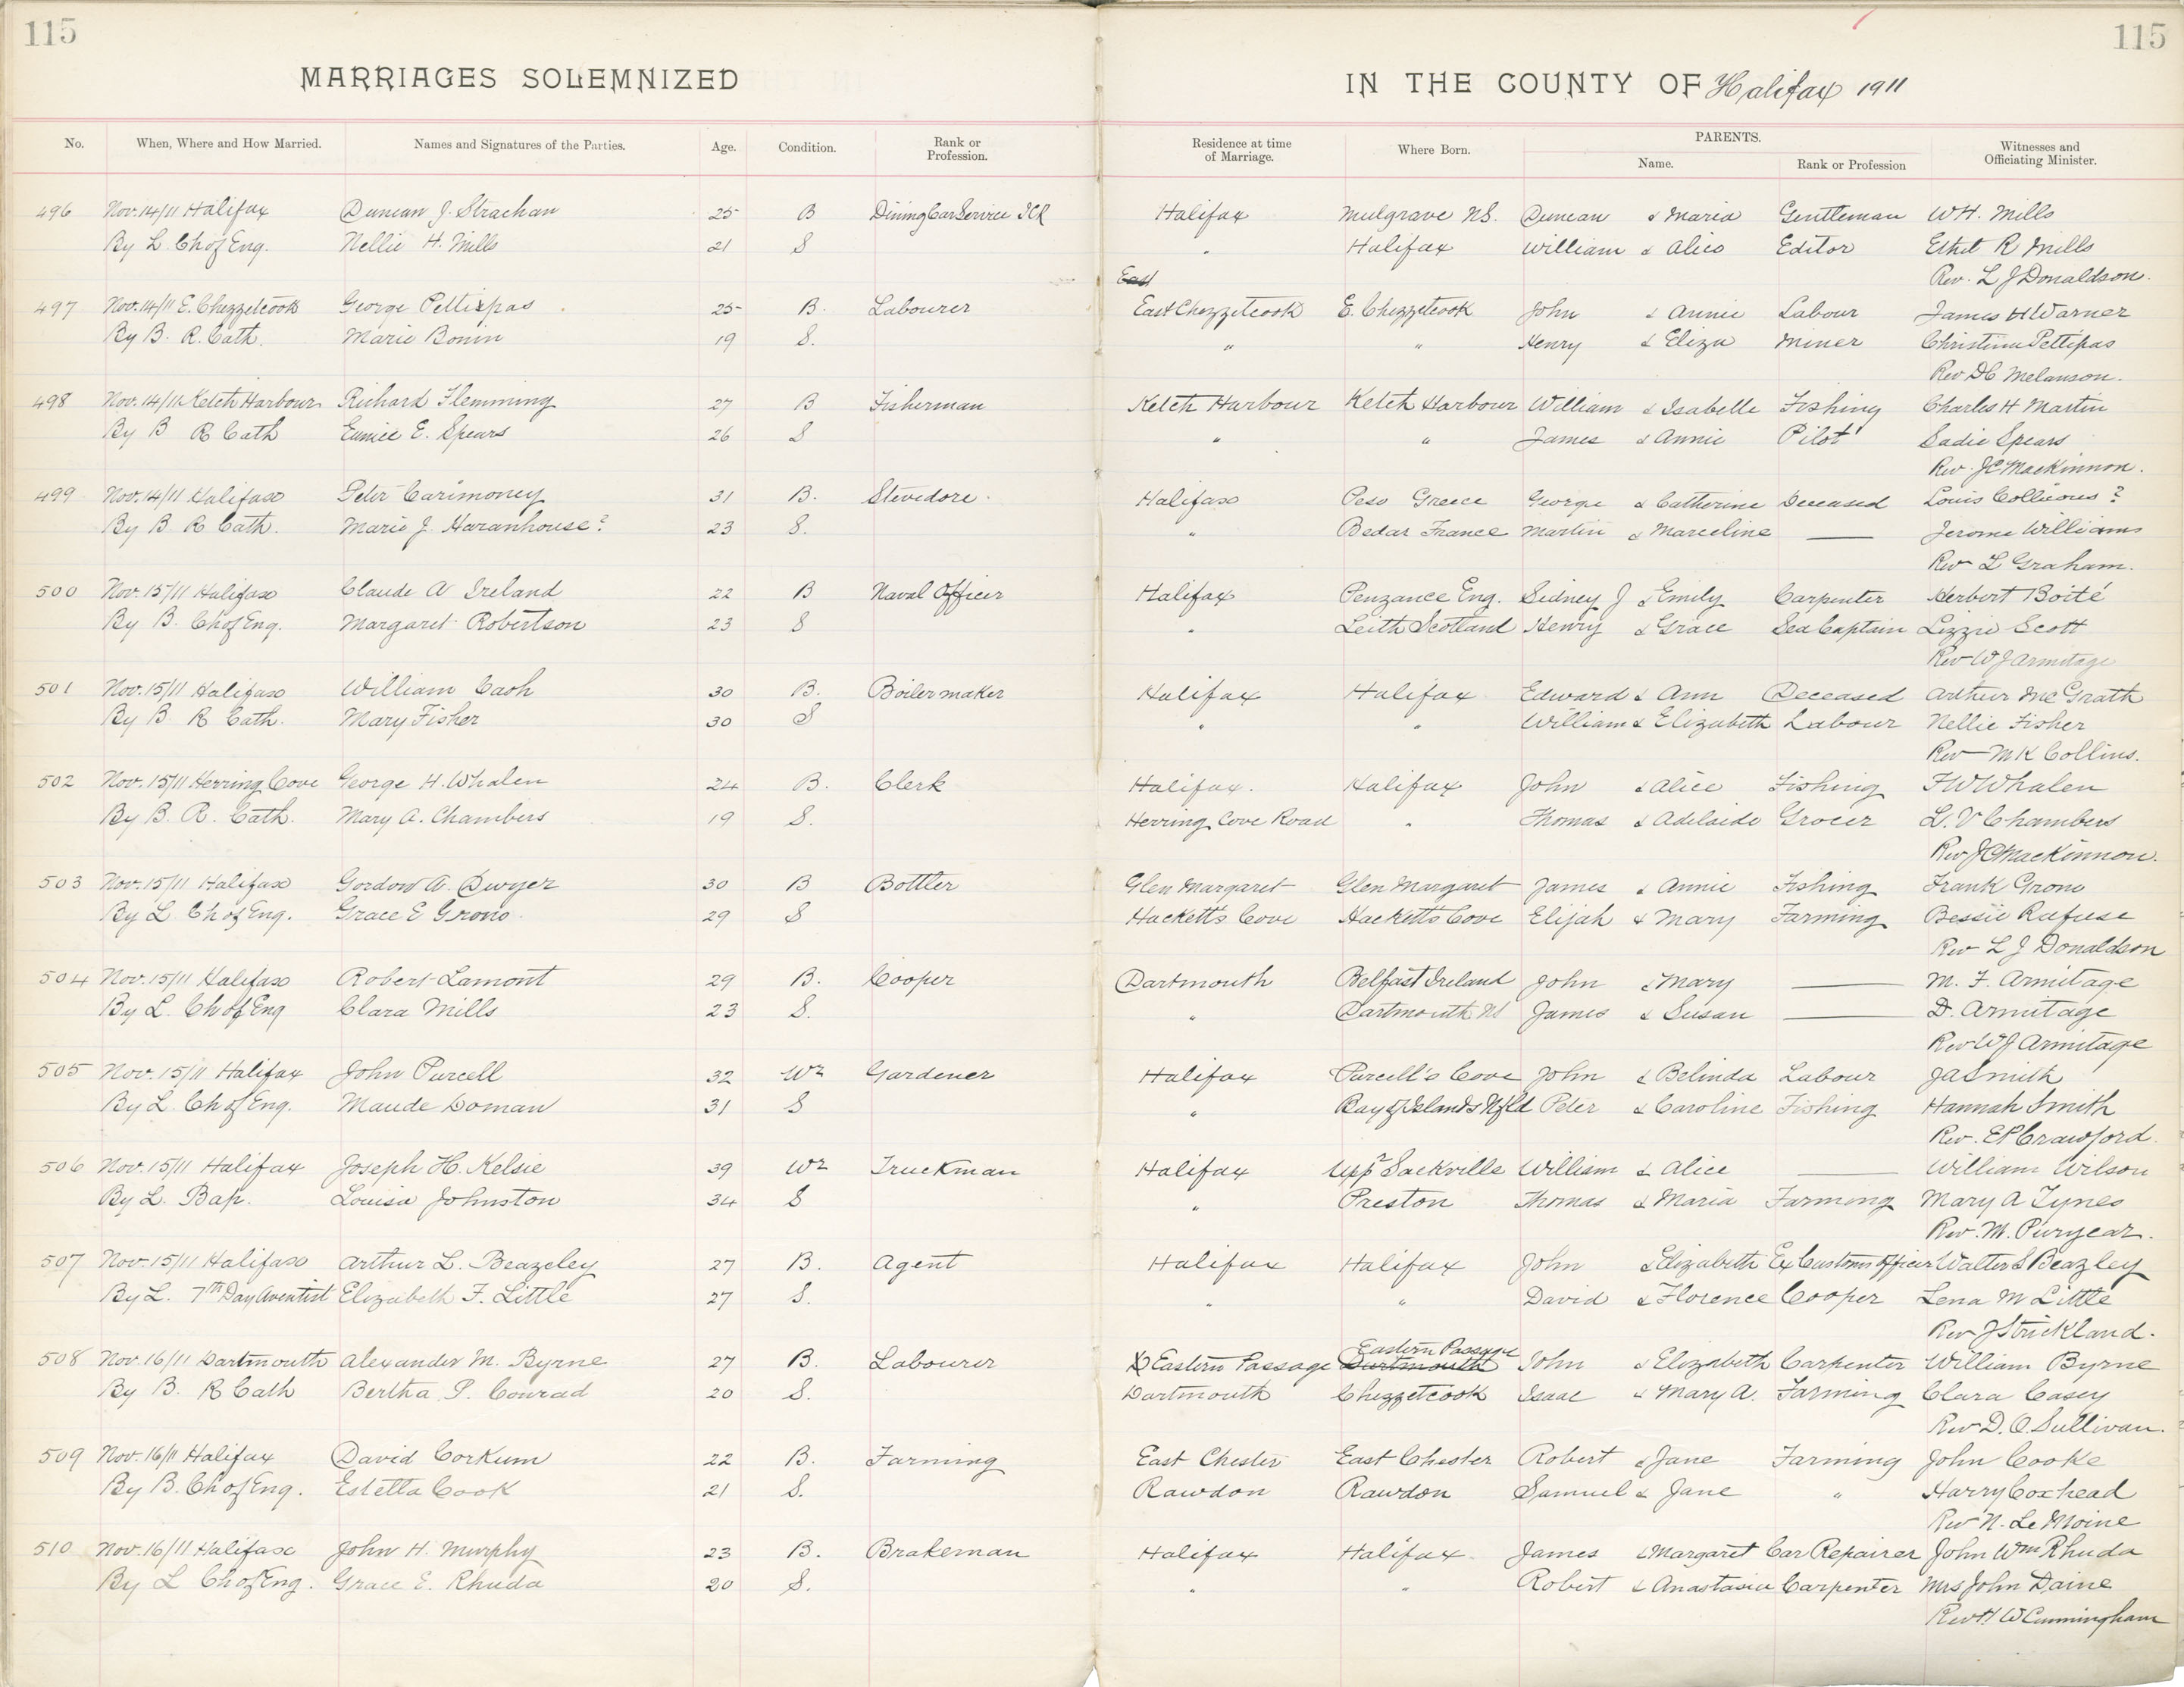 115 115
MARRIAGES SOLEMNIZED IN THE COUNTY OF Halifax 1911
No. When, Where and How Married. Names and Signatures of the Parties. Age. Condition. Rank or Profession. Residence at time of Marriage. Where Born. PARENTS. Name. Rank or Profession Witnesses and Officiating Minister.
496 Nov. 14/11 Halifax Duncan J. Strachan 25 B Dining Car Service ICR Halifax Mulgrave NS. Duncan & Maria Gentleman W H. Mills
By L. Ch of Eng. Nellie H. Mills 21 S " Halifax William & Alice Editor Ethel R Mills
East Rev. L J Donaldson.
497 Nov. 14/11 E. Chezzetcook George Pettipas 25 B. Labourer East Chezzetcook E. Chezzetcook John & Annie Labour James H Warner
By B. R. Cath. Marie Bonin 19 S. " " Henry & Eliza Miner Christina Pettipas
Rev D C Melanson.
498 Nov. 14/11 Ketch Harbour Richard Flemming 27 B Fisherman Ketch Harbour Ketch Harbour William & Isabelle Fishing Charles H Martin
By B R Cath Eunice E. Spears 26 S " " James & Annie Pilot Sadie Spears
Rev. J C MacKinnon.
499 Nov. 14/11 Halifax Peter Carimoney 31 B. Stevedore. Halifax Peso Greece George & Catherine Deceased Louis Collicous ?
By B R Cath. Marie J. Haranhouse? 23 S. " Bedar France Martin & Marceline — Jerome Williams
Rev L Graham.
500 Nov. 15/11 Halifax Claude A Ireland 22 B Naval Officer Halifax Penzance Eng. Sidney J & Emily Carpenter Herbert Boité
By B. Ch of Eng. Margaret Robertson 23 S " Leith Scotland Henry & Grace Sea Captain Lizzie Scott
Rev W J Armitage
501 Nov. 15/11 Halifax William Cash 30 B. Boilermaker Halifax Halifax Edward & Ann Deceased Arthur McGrath
By B R Cath. Mary Fisher 30 S " " William & Elizabeth Labour Nellie Fisher
Rev M K Collins.
502 Nov. 15/11 Herring Cove George H. Whalen 24 B. Clerk Halifax. Halifax John & Alice Fishing F W Whalen
By B. R. Cath. Mary A. Chambers 19 S. Herring Cove Road " Thomas & Adelaide Grocer L. V Chambers
Rev J C MacKinnon.
503 Nov. 15/11 Halifax Gordon A. Dwyer 30 B Bottler Glen Margaret Glen Margaret James & Annie Fishing Frank Grono
By L Ch of Eng. Grace E Grono. 29 S Hackett's Cove Hackett's Cove Elijah & Mary Farming Bessie Rafuse
Rev L J Donaldson
504 Nov. 15/11 Halifax Robert Lamont 29 B. Cooper Dartmouth Belfast Ireland John & Mary — M. F. Armitage
By L. Ch of Eng Clara Mills 23 S. " Dartmouth NS James & Susan — D. Armitage
Rev W J Armitage
505 Nov. 15/11 Halifax John Purcell 32 Wr Gardener Halifax Purcell's Cove John & Belinda Labour J A Smith
By L. Ch of Eng. Maude Doman 31 S " Bay of Islands Nfld Peter & Caroline Fishing Hannah Smith
Rev. E P Crawford.
506 Nov. 15/11 Halifax Joseph H. Kelsie 39 Wr Truckman Halifax Uppr Sackville William & Alice — William Wilson
By L. Bap. Louisa Johnston 34 S " Preston Thomas & Maria Farming Mary A Tynes
Rev. M. Puryear.
507 Nov. 15/11 Halifax Arthur L. Beazeley 27 B. Agent Halifax Halifax John & Elizabeth Ex Customs Officer Walter S Beazley
By L. 7th Day Aventist Elizabeth F. Little 27 S. " " David & Florence Cooper Lena M Little
Rev J Strickland.
Eastern Passage
508 Nov. 16/11 Dartmouth Alexander M. Byrne 27 B. Labourer Eastern Passage Dartmouth John & Elizabeth Carpenter William Byrne
By B. R Cath Bertha P. Conrad 20 S. Dartmouth Chezzetcook Isaac & Mary A. Farming Clara Casey
Rev D. O. Sullivan.
509 Nov. 16/11 Halifax David Corkum 22 B. Farming East Chester East Chester Robert & Jane Farming John Cooke
By B. Ch of Eng. Estella Cook 21 S. Rawdon Rawdon Samuel & Jane " Harry Coxhead
Rev N. Le Moine
510 Nov. 16/11 Halifax John H. Murphy 23 B. Brakeman Halifax Halifax James & Margaret Car Repairer John Wm Rhuda
By L Ch of Eng. Grace E. Rhuda 20 S. " " Robert & Anastasia Carpenter Mrs John Daine
Rev H W Cunningham